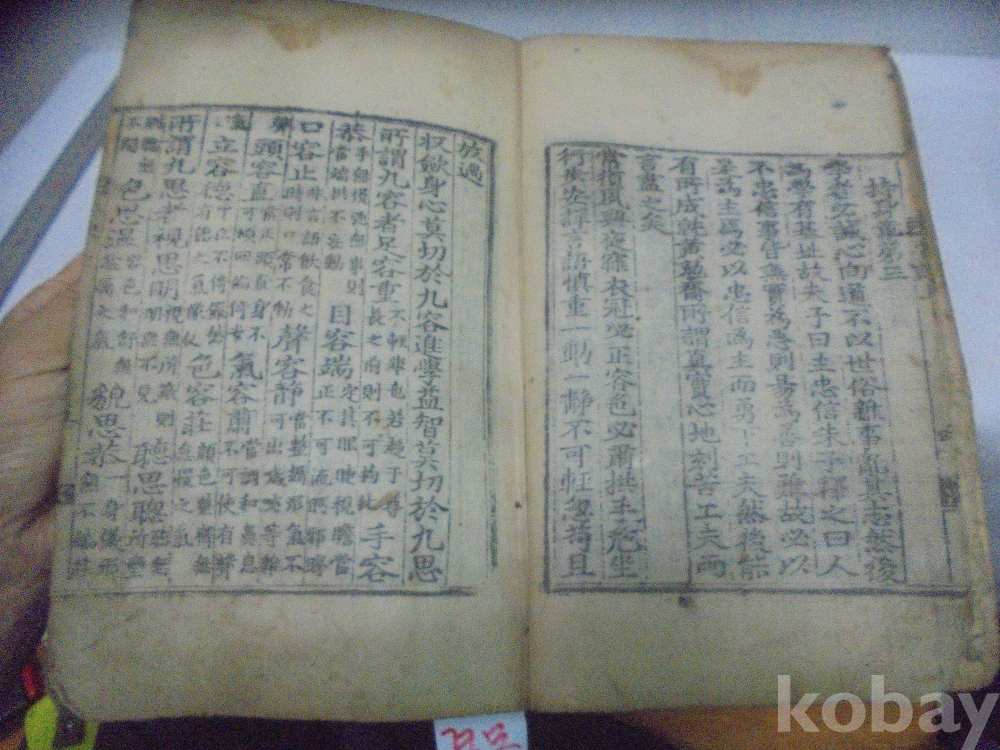 持身章第三
學者必誠心向道不以世俗雜事亂其志然後
爲學有基址故夫子曰主忠信朱子釋之曰人
不忠信事皆無實爲惡則易爲善則難故必以
是爲主焉必以忠信爲主而勇下工夫然後能
有所成就黃勉齋所謂眞實心地刻苦工夫兩
言盡之矣
常須夙興夜寐衣冠必正容色必肅拱手危坐
行步安詳言語愼重一動一靜不可輕忽苟且
放過
收斂身心莫切於九容進學益智莫切於九思
所謂九容者足容重不輕擧也若趨于尊長之前則不可拘此手容
恭手無慢弛無事則當端拱不妄動目容端定其眼睫視瞻當正不可流眄邪睇
口容止非言語飮食之時則口常不動聲容靜當整攝形氣不可出噦咳等雜
聲頭容直當正頭直身不可傾回偏倚氣容肅當調和鼻息不可使有聲
氣立容德中立不倚儼然有德之氣像色容莊顔色整齊無怠慢之氣
所謂九思者視思明視無所蔽則明無不見聽思聰聽無所壅
則聰無不聞色思溫容色和舒無忿厲之氣貌思恭一身儀形無不端莊
kobay